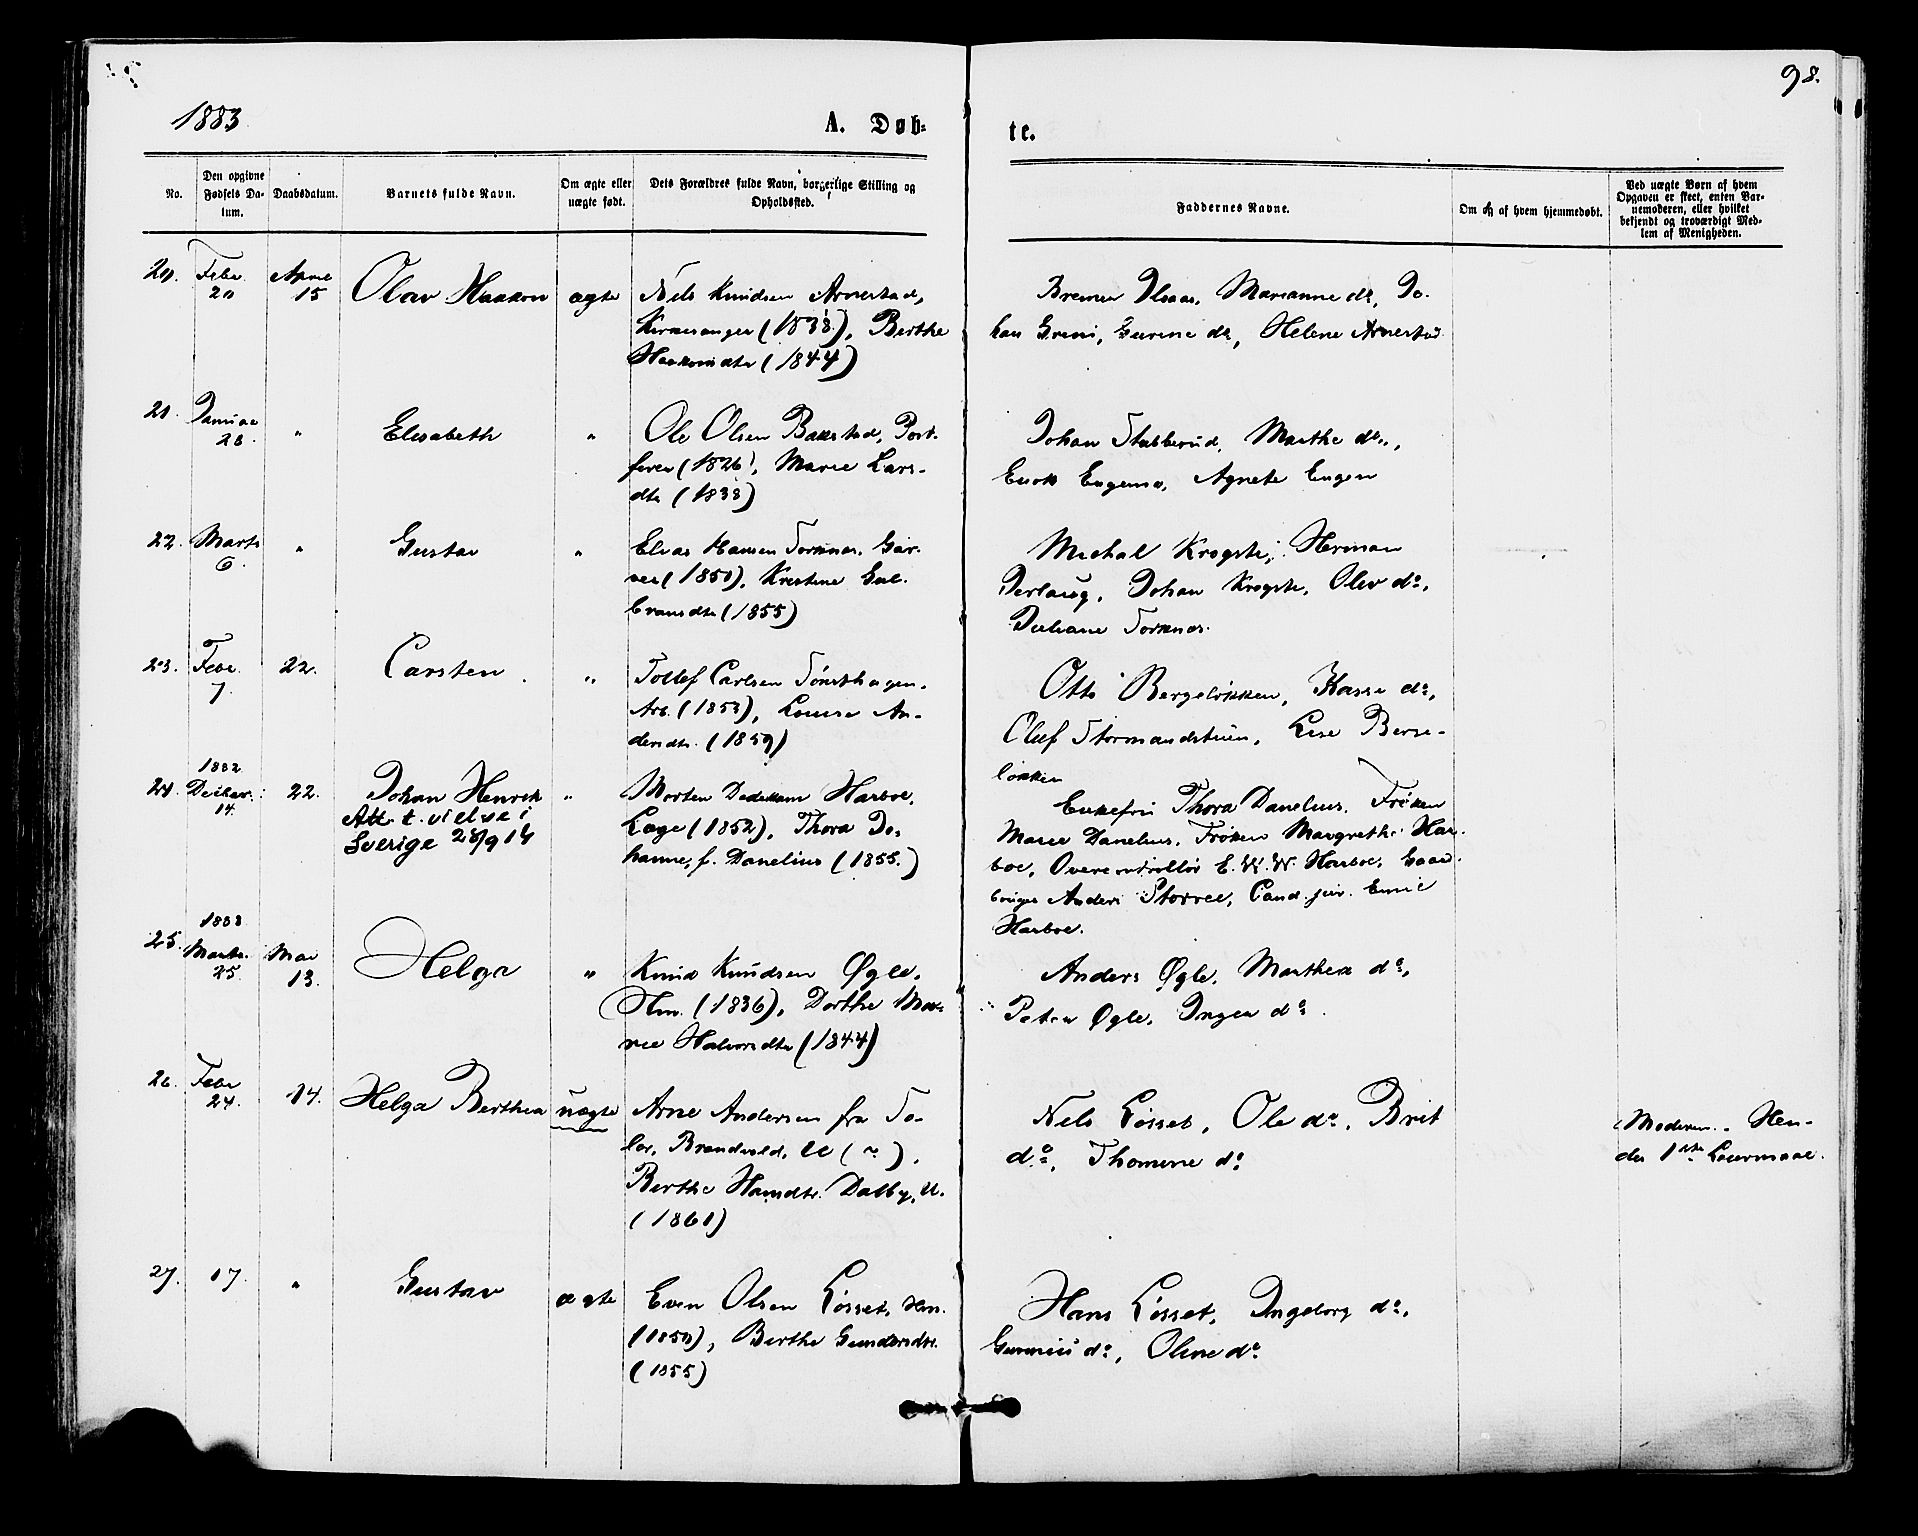 98.
1883
A. Døb-
te.
No.
Den opgivne
Fødsels Da-
tum.
Daabsdatum.
Barnets fulde Navn.
Om ægte eller
uægte født.
Dets Forældres fulde Navn, borgerlige Stilling og
Opholdssted.
Faddernes Navne.
Om og af hvem hjemmedøbt.
Ved uægte Børn af hvem
Opgaven er skeet, enten Bar-
nemoderen, eller hvilket
bekjendt og troværdigt Med-
lem af Menigheden.
20.
Febr.
20
April
15
Olav Haakon
ægte
Nils Knudsen Arnestad,
Kirkesanger (1838), Berthe
Haakonsdtr (1844)
Marianne do, Jo-
han Greni, Gurine do, Helene Arnestad
21.
Januar
28.
"
Elisabeth
"
Ole Olsen Bakstad, Post-
fører (1826), Marie Lars-
dtr (1838)
Johan Stubberud, Marthe do.,
Agnete Engen
22.
Marts
6.
"
Gustav
"
Elias Hansen Torknæs, Gar-
ver (1850), Kristine Gul-
brandsdtr (1855)
Michal Krogsti, Herman
Johan Krogsti, Olav do,
Juliane Torknæs.
23.
Febr.
7.
22.
Carsten
"
Tollef Carlsen Tønsthagen,
Arb. (1853), Louise An-
dersdtr. (1859)
Otto Bergeløkken, Kasse do,
Oluf Stormandstuen, Lise Berge-
løkken
24.
1882
Decbr.
14.
22.
Johan Henrik
Att. t. vielse i
Sverige 28/9 14
"
Morten Dedekam Harboe,
Læge (1852), Thora Jo-
hanne, f. Danelius (1855.)
Enkefru Thora Danelius, Frøken
Marie Danelius, Frøken Margrethe Har-
boe, Overcontrollør E. W. W. Harboe, Gaard-
bruger Anders Storree, Cand. jur. Emil
Harboe.
25.
1883
Marts.
25.
Mai
13.
Helga
"
Knud Knudsen Øgle,
Hm. (1836), Dorthe Ma-
rie Halvorsdtr (1844)
Anders Øgle, Marthea do,
Peter Øgle, Inger do.
26.
Febr
24.
14.
Helga Berthea
uægte
Arne Andersen fra So-
lør, Brandvold, U (~).
Berthe Hansdtr. Dalby, U.
(1861)
Nils Løsset, Ole do, Brit
do, Thomine do
Moderen. - Hen-
des 1ste Leiermaal.
27.
17.
"
Gustav
ægte
Even Olsen Løsset, Hm.
(1850), Berthe Gundersdtr.
(1855)
Hans Løsset, Ingeborg do,
do, Oline do.